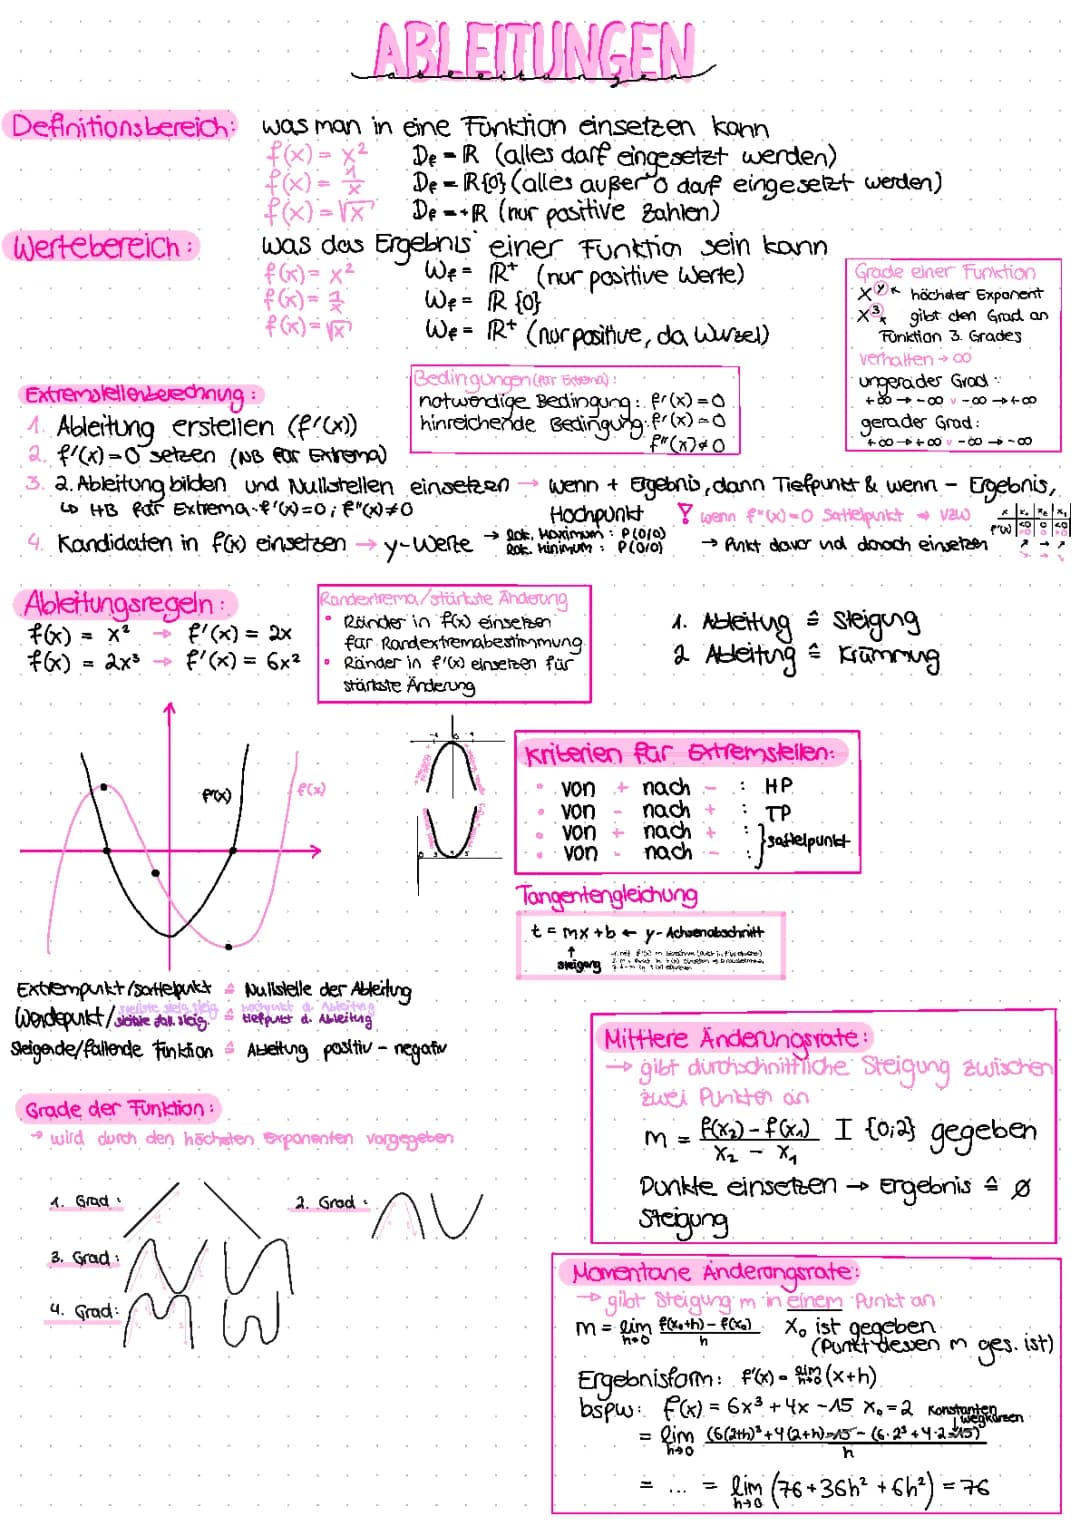 ABLEITUNGEN
Definitionsbereich: was man in eine Funktion einsetzen kann
f(x) = x² De = R (alles darf eingesetzt werden)
f(x) = 1/x De = R{0} (alles außer 0 darf eingesetzt werden)
f(x) = √x De = +R (nur positive Zahlen)
Wertebereich: was das Ergebnis einer Funktion sein kann
f(x) = x² We = R⁺ (nur positive Werte)
f(x) = 1/x We = R {0}
f(x) = √x We = R⁺ (nur positive, da Wurzel)
Grade einer Funktion
x^y ← höchster Exponent
x³ gibt den Grad an
Funktion 3. Grades
verhalten → ∞
ungerader Grad:
+∞ → -∞ v -∞ → +∞
gerader Grad:
+∞ → +∞ v -∞ → -∞
Bedingungen (für Extrema):
notwendige Bedingung: f'(x) = 0
hinreichende Bedingung: f'(x) = 0
f''(x) ≠ 0
Extremstellenberechnung:
1. Ableitung erstellen (f'(x))
2. f'(x) = 0 setzen (NB für Extrema)
3. 2. Ableitung bilden und Nullstellen einsetzen → wenn + Ergebnis, dann Tiefpunkt & wenn - Ergebnis,
↳ HB für Extrema - f'(x) = 0; f''(x) ≠ 0 Hochpunkt ! wenn f''(x) = 0 Sattelpunkt → VZW
4. Kandidaten in f(x) einsetzen → y-Werte → Lok. Maximum: P(0/0)
Lok. Minimum: P(0/0) → Punkt davor und danach einsetzen
Ableitungsregeln:
f(x) = x² → f'(x) = 2x
f(x) = 2x³ → f'(x) = 6x²
Randextrema/stärkste Änderung
• Ränder in f(x) einsetzen
für Randextremabestimmung
• Ränder in f'(x) einsetzen für
stärkste Änderung
1. Ableitug ≙ Steigung
2 Ableitung ≙ Krümmung
f'(x)
f(x)
Kriterien für Extremstellen:
• von + nach - : HP
• von - nach + : TP
• von + nach + :
• von - nach - : } Sattelpunkt
Tangentengleichung
t = mx + b ← y-Achsenabschnitt
↑
steigung
Extrempunkt/Sattelpunkt ≙ Nullstelle der Ableitung
Wendepunkt/ stärkste fall. steig. ≙ Hochpunkt d. Ableitung
tiefpunkt d. Ableitung
Steigende/fallende Funktion ≙ Ableitung positiv - negativ
Mittlere Änderungsrate:
→ gibt durchschnittliche Steigung zwischen
zwei Punkten an
m = f(x₂) - f(x₁) / x₂ - x₁ I {0;2} gegeben
Punkte einsetzen → Ergebnis ≙ Ø
Steigung
Grade der Funktion:
→ wird durch den höchsten Exponenten vorgegeben
1. Grad: 2. Grad:
3. Grad:
4. Grad:
Momentane Änderungsrate:
→ gibt Steigung m in einem Punkt an
m = lim h→0 f(x₀+h) - f(x₀) / h x₀ ist gegeben
(Punkt dessen m ges. ist)
Ergebnisform: f'(x) = lim h→0 (x+h)
bspw: f(x) = 6x³ + 4x - 15 x₀ = 2 Konstanten
wegkürzen
= lim h→0 (6(2+h)³ + 4(2+h) - 15 - (6·2³ + 4·2 - 15) / h
= ... = lim h→0 (76 + 36h² + 6h²) = 76